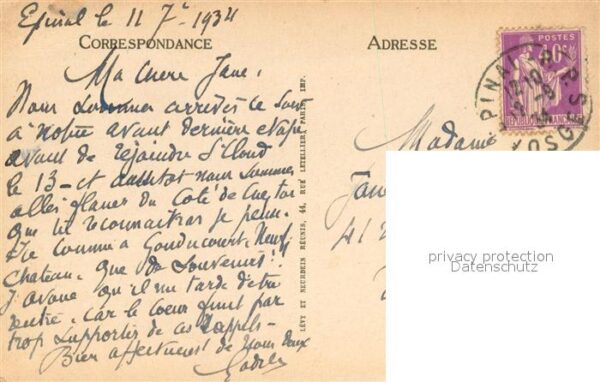 Epinal le 11 7re 1934
CORRESPONDANCE
Ma chere Jane,
Nous sommes arrivés ce soir
à notre avant dernière etape
avant de rejoindre St Cloud
le 13 - et aussitot nous sommes
allés flaner du coté de
que tu reconnaitras je pense.
comme a Gondrecourt, Neuf
Chateau. Que de souvenirs!
J'avoue qu'il me tarde d'etre
rentré, car le coeur finit par
trop supporter de ces rappels -
Bien affectueusement de nous deux
LÉVY ET NEURDEIN RÉUNIS, 44, RUE LETELLIER, PARIS, IMP.
ADRESSE
POSTES
40c
EPINAL
VOSGES
Madame
Jane
41
privacy protection
Datenschutz